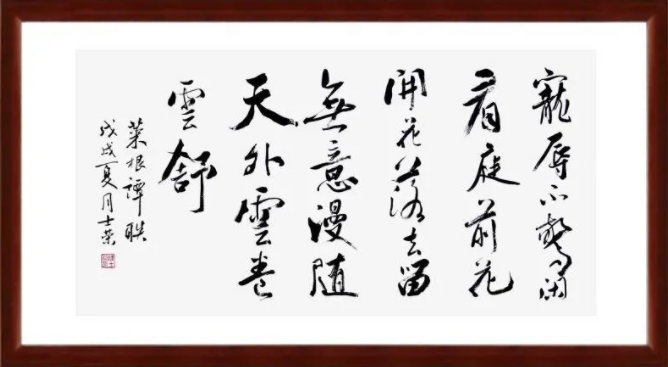 寵辱不驚閑
看庭前花
開花落去留
無意漫随
天外雲卷
雲舒
菜根譚联
戊戌夏月士荣